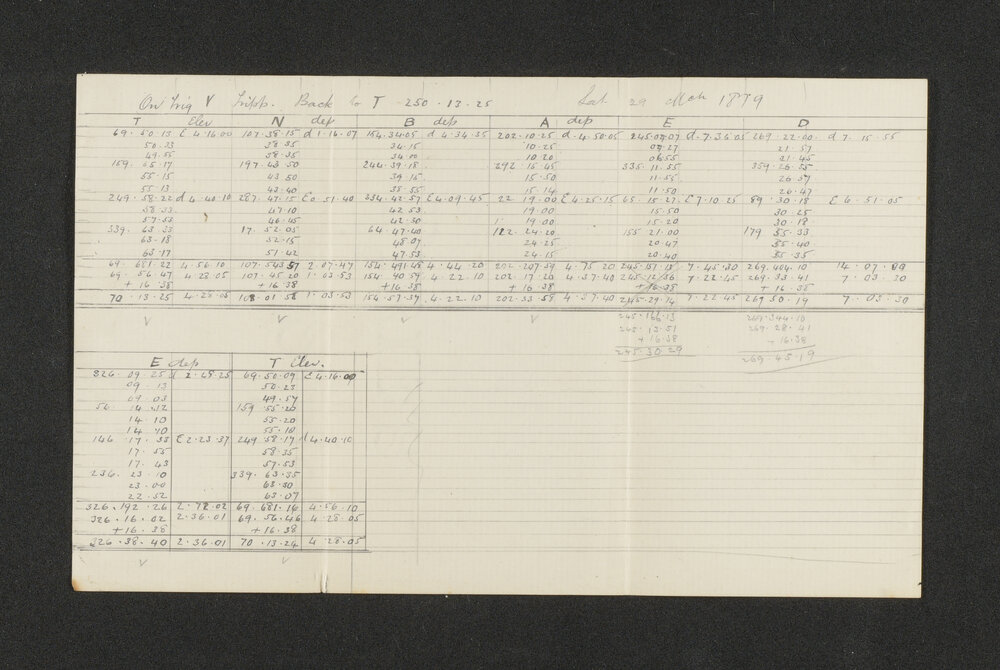 On Trig V Tripp. Back to T - 250 . 13 . 25 Sat. 29 Mch 1879
T Elev N dep B dep A dep E D
69 . 50 . 13 E 4 . 16 00 107 . 38 . 15 d 1 . 16 . 07 154 . 34 . 05 d 4 . 34 . 35 202 . 10 . 25 d . 4 . 50 05 245 07 07 d . 7 . 36 05 269 . 22 . 00 d 7 . 15 . 55
50 . 33 38 35 34 . 15 10 . 25 07 27 21 57
49 . 55 38 . 35 34 10 10 20 06 55 21 . 45
159 . 55 . 17 197 . 43 50 244 . 39 . 18 292 15 45 335 . 11 . 55 359 . 26 . 25
55 . 15 43 50 39 15 15 . 50 11 . 55 26 . 37
55 . 13 43 . 40 38 55 15 . 14 11 . 50 26 . 47
249 . 58 . 22 d 4 . 40 10 287 . 47 . 15 E 0 . 51 . 40 334 . 42 . 57 E 4 . 09 . 45 22 19 . 00 E 4 . 25 . 15 65 . 15 . 27 E 7 . 10 25 89 . 30 . 18 E 6 . 51 . 05
58 . 33 47 . 10 42 . 53 19 . 00 15 . 50 30 . 25
57 . 53 46 . 45 42 . 50 19 . 00 15 . 20 30 . 18
339 . 63 . 33 17 . 52 . 05 64 . 47 . 40 112 . 24 . 20 155 21 . 00 179 55 . 33
63 . 18 52 . 15 48 . 07 24 . 25 20 . 47 35 . 40
63 . 17 51 . 42 47 . 53 24 . 15 20 . 40 35 . 35
69 . 681 . 22 4 . 56 . 10 107 . 543 57 2 . 07 . 47 154 . 491 . 48 4 . 44 . 20 202 . 207 . 59 4 . 75 . 20 245 . 151 . 13 7 . 45 . 30 269 . 404 . 10 14 . 07 . 00
69 . 56 . 47 4 . 28 . 05 107 . 45 . 20 1 . 03 . 53 154 . 40 . 59 4 . 22 . 10 202 . 17 . 20 4 . 37 . 40 245 . 12 . 36 7 . 22 . 45 269 . 33 . 41 7 . 03 . 30
+ 16 . 38 + 16 . 38 + 16 . 38 + 16 . 38 + 16 . 38 + 16 . 38
70 . 13 . 25 4 . 28 . 05 108 . 01 . 58 1 . 03 . 53 154 . 57 . 37 4 . 22 . 10 202 . 33 . 58 4 . 37 . 40 245 . 29 . 14 7 . 22 . 45 269 50 . 19 7 . 03 . 30
245 . 166 . 13 269 . 344 . 10
245 . 13 . 51 269 . 28 . 41
+ 16 . 38 + 16 . 38
245 . 30 . 29 269 . 45 19
E dep T Elev.
326 . 09 . 25 d 2 . 48 . 25 69 . 50 . 09 E 4 . 16 . 00
09 . 13 50 . 23
09 . 03 49 . 57
56 . 14 . 12 159 . 55 . 20
14 . 10 55 . 20
14 . 10 55 . 10
146 . 17 . 33 E 2 . 23 . 37 249 58 . 17 d 4 . 40 . 10
17 . 55 58 . 35
17 . 43 57 . 53
236 . 23 . 10 339 . 63 . 35
23 . 00 63 . 30
22 . 52 63 . 07
326 . 192 . 26 2 . 72 . 02 69 . 681 . 16 4 . 56 . 10
326 . 16 . 02 2 . 36 . 01 69 . 56 . 46 4 . 28 . 05
+ 16 . 38 + 16 . 38
326 . 38 . 40 2 . 36 . 01 70 . 13 . 24 4 . 28 . 05